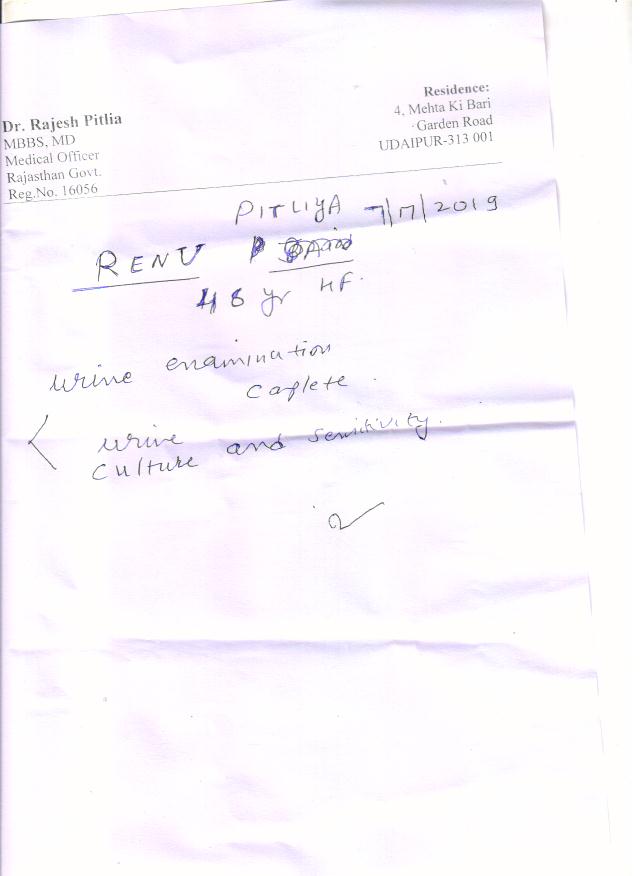 Dr. Rajesh Pitlia
MBBS, MD
Medical Officer
Rajasthan Govt.
Reg.No. 16056
Residence:
4, Mehta Ki Bari
Garden Road
UDAIPUR-313 001
PITLIYA 7/7/2019
RENU
48 yr HF.
urine enamination
Caplete.
urine
culture and sensitivity.